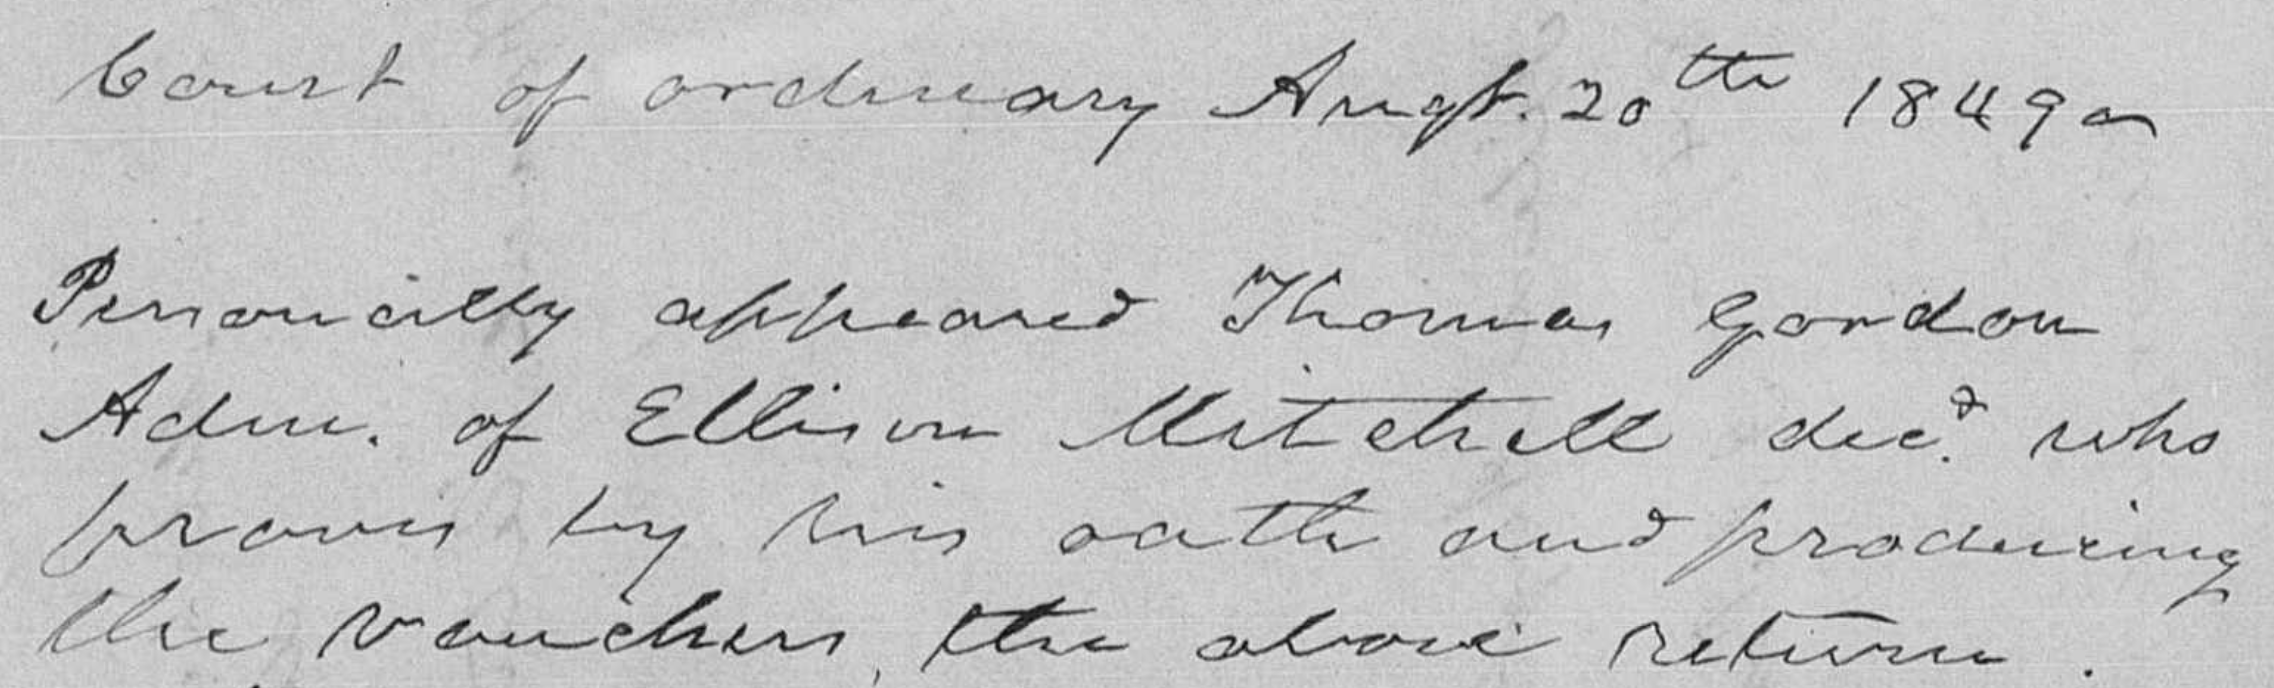 Court of ordinary Augt. 20th 1849
Personally appeared Thomas Gordon
Adm. of Ellison Mitchell decd. who
proves by his oath and producing
the vouchers, the above return.